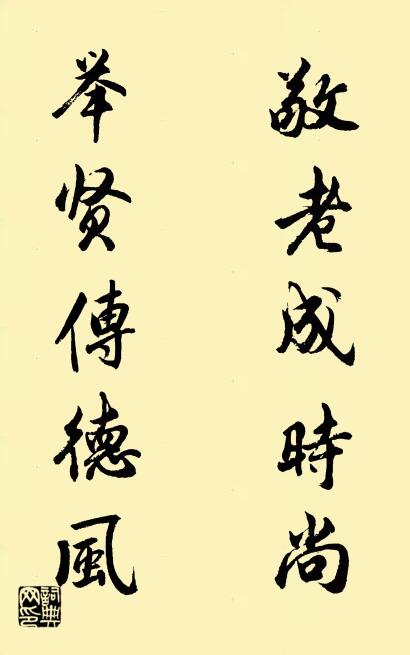 敬老成時尚
举贤傳德風
詞典网印